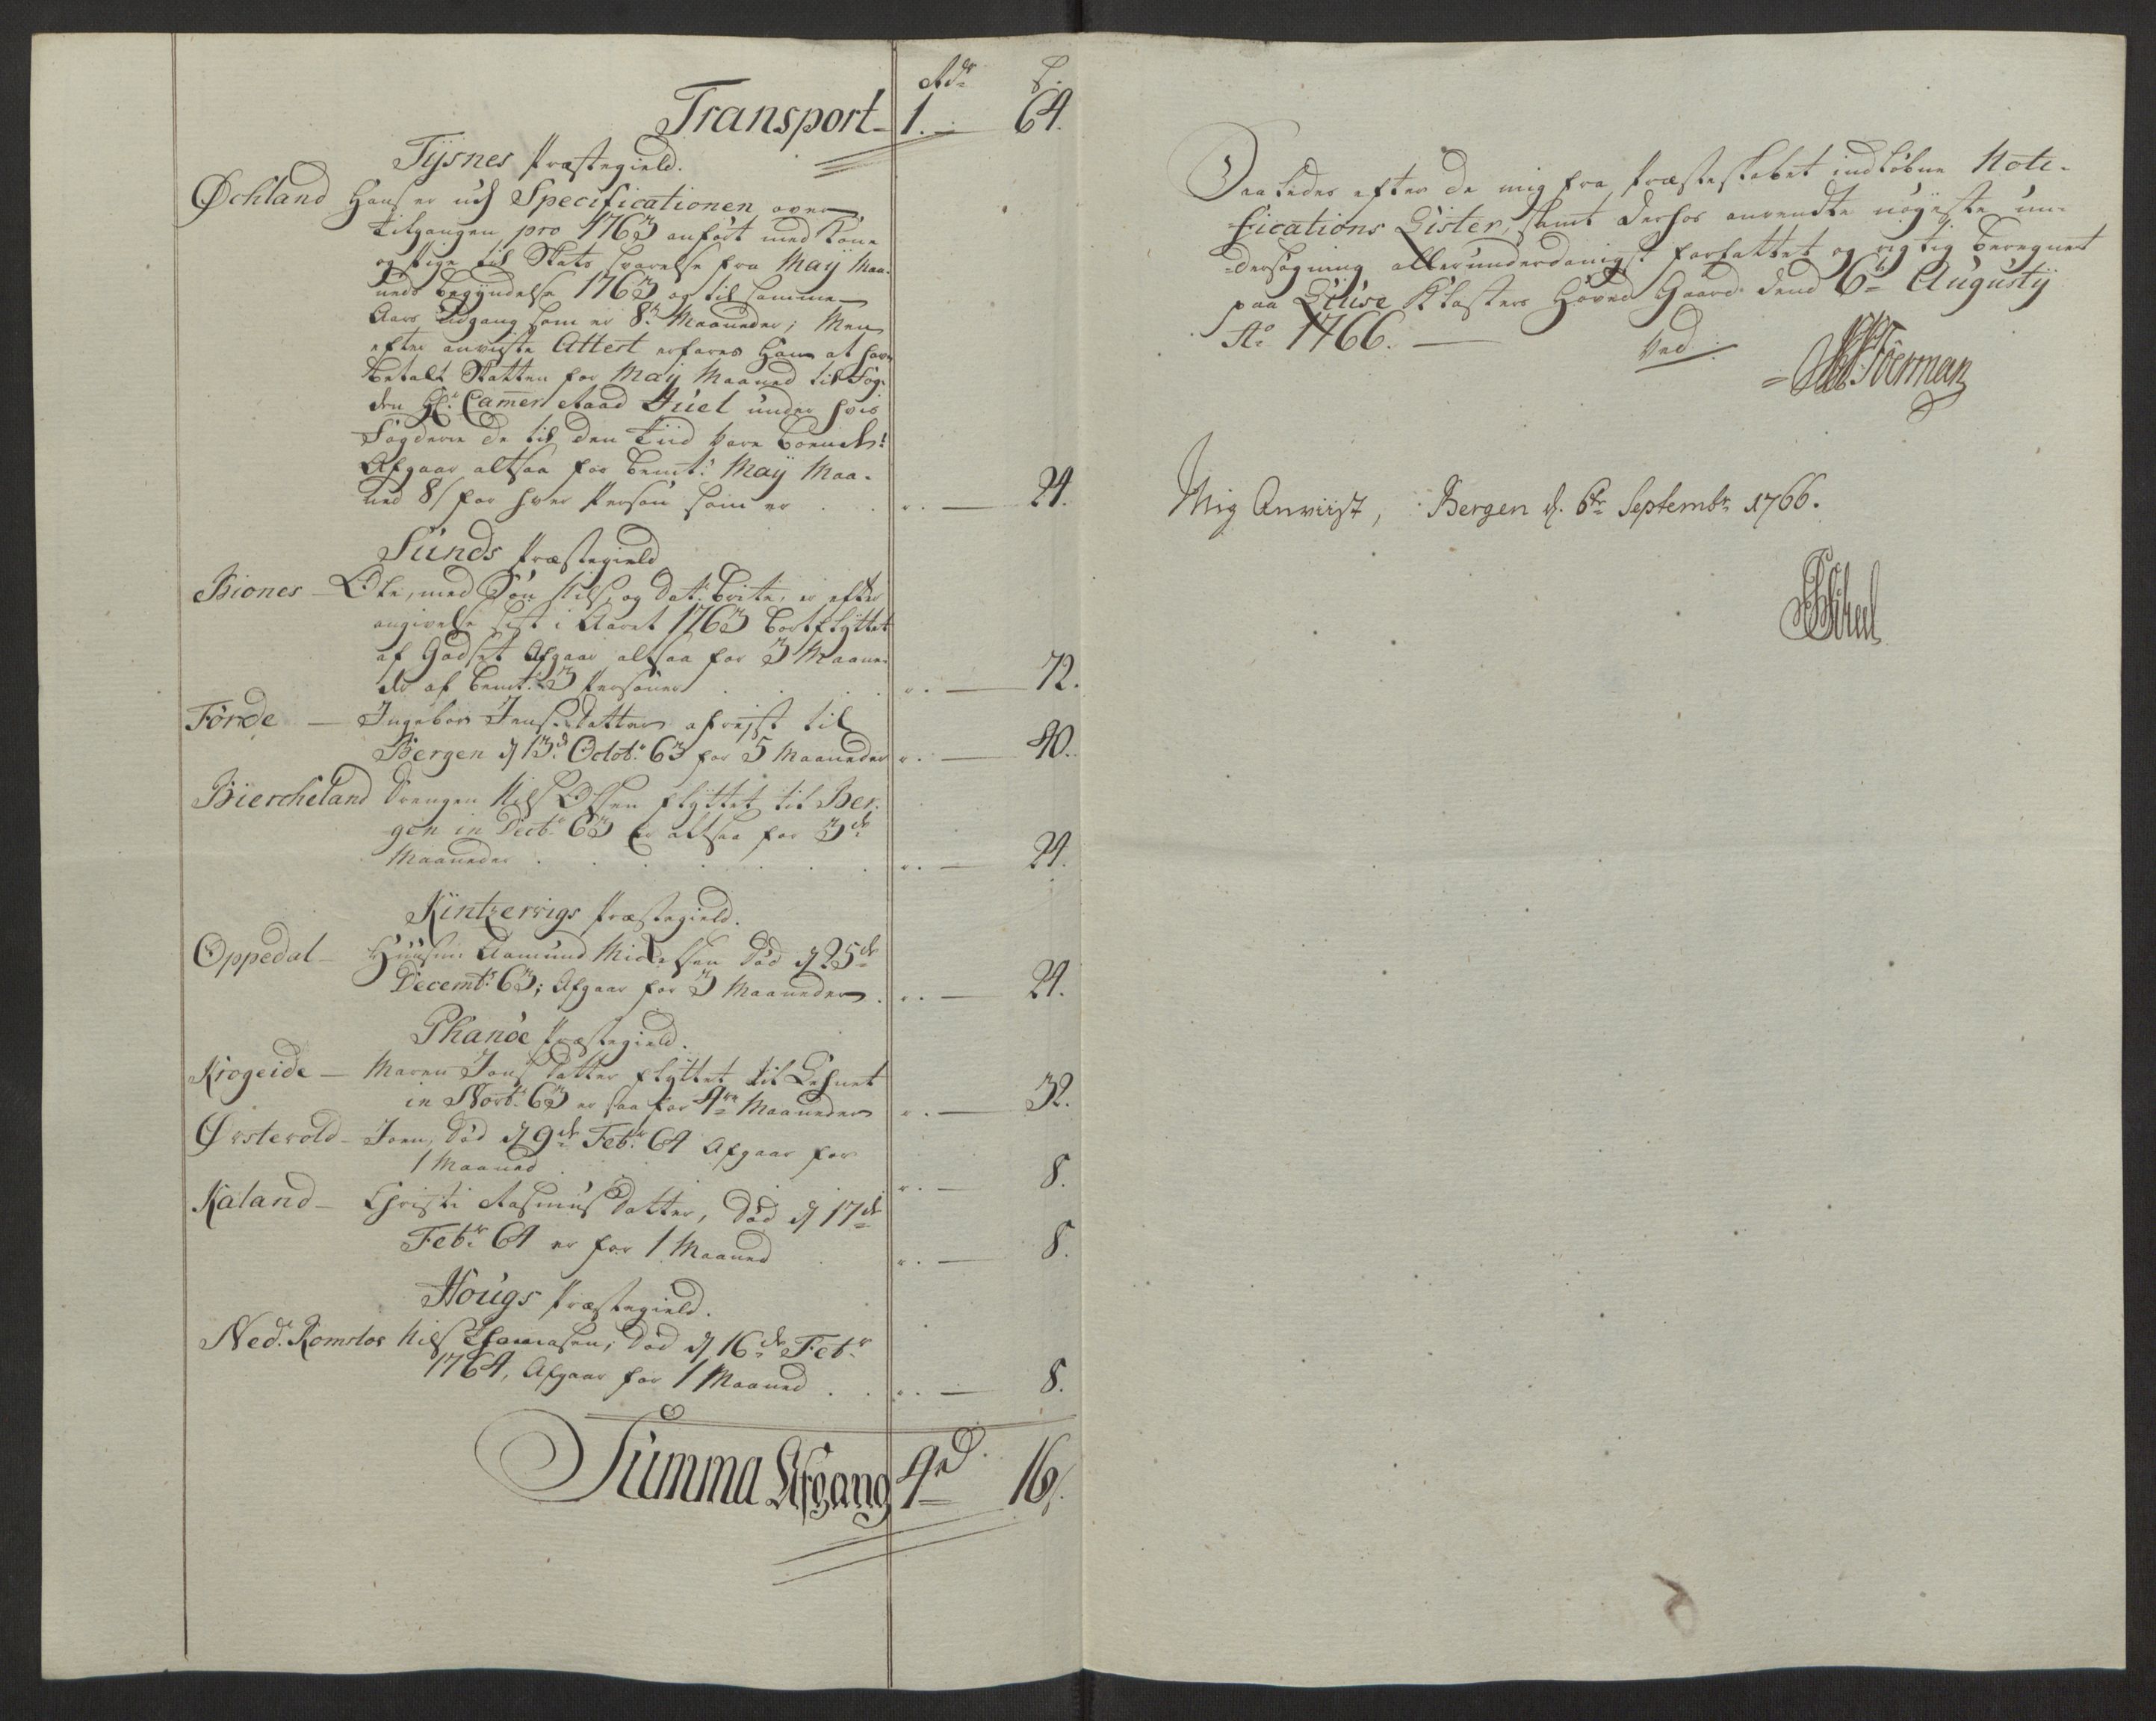 Rdr ß.
Transport 1. — 64.
Tÿsnes Præstegield.
Øchland Hans er udj Specificationen over
tilgangen pro 1763 anført med Kone
og Pige til Skats svarelse fra Maÿ Maa-
neds begyndelse 1763 og til samme
Aars udgang som er 8te Maaneder; Men
efter anviste Attest erfares Ham at have
betalt Skatten for Maÿ Maaned til Fog-
den Hr. Cammer Raad Juel under hvis
Fogderie de til den Tiid vare boende:
Afgaar altsaa for bemt: Maÿ Maa-
ned 8/ for hver Person som er . . — 24.
Sunds Præstegield
Biones — Ole, med Søn Nils, og dat: Brite, er efter
angivelse sist i Aaret 1763 bortflÿttet
af Godset Afgaar altsaa for 3 Maane-
der af bemt: 3 Personer . . — 72.
Förde — Ingebor Jens datter afreist til
Bergen d 13d Octobr 63 for 5 Maaneder . . — 40.
Biercheland Drengen Nils Olsen flÿttet til Ber-
gen in Decbr 63 er altsaa for 3de
Maaneder . . . — 24.
Kintzervigs Præstegield.
Oppedal — Huusm: Aamund Mickelsen død d 25de
Decembr 63; Afgaar for 3 Maaneder . . . — 24.
Phanöe Præstegield.
Krogeide — Maren Jons datter flÿttet til Lehnet
in Novbr 63 er saa for 4re Maaneder . . — 32.
Ørstevold — Joen, død d 9de Febr 64 Afgaar for
1 Maaned . . — 8.
Kaland — Christi Rasmus datter, død d 17de
Febr 64 er for 1 Maaned . . — 8.
Hougs Præstegield.
Nedr. Romslos Nils Thomasen, død d 16de Febr
1764, Afgaar for 1 Maaned . . . — 8.
Summa Afgang 4rd 16ß.
Saaledes efter de mig fra Præsteskabet indløbne Noti-
fications Lister, samt derhos anvendte nöÿeste un-
dersögning allerunderdanigst forfattet og rigtig beregnet
paa Lüse Klosters Hoved Gaard dend 6te Augustÿ
Ao 1766. —
Ved
Mig Anviist, Bergen d. 6te Septembr 1766.